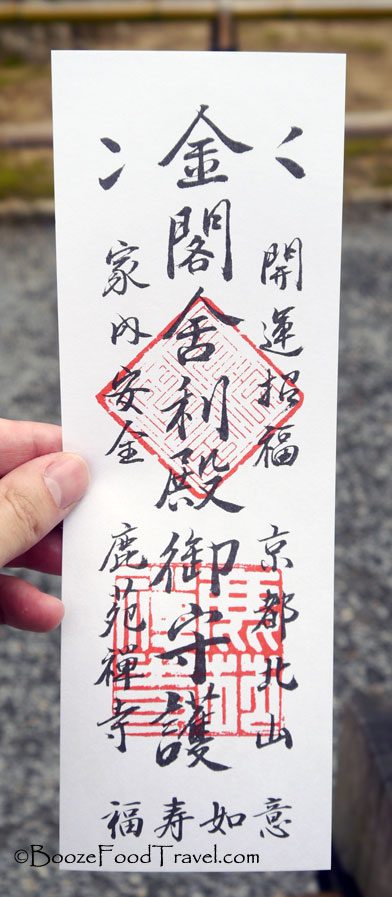 開運招福
京都北山
金閣舎利殿御守護
家内安全
鹿苑禪寺
福寿如意
©BoozeFoodTravel.com